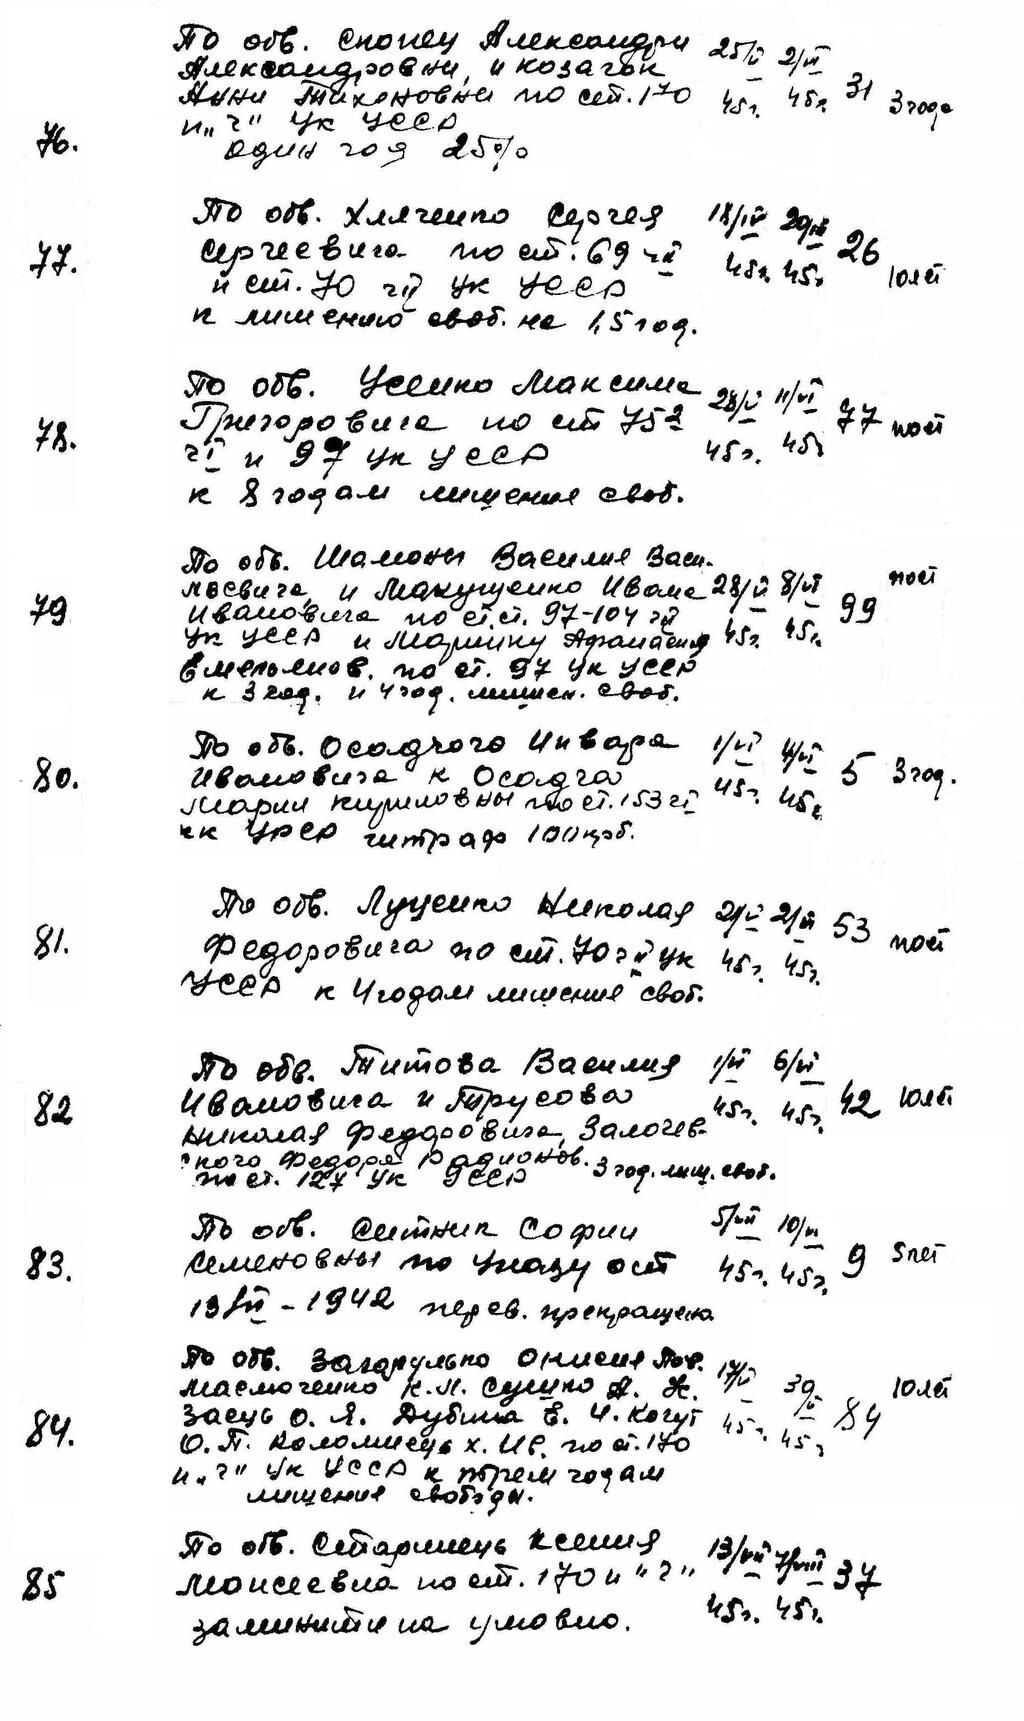 76.
По обв. Скопец Александри
Александровни, и козачок
Анни Тихоновни по ст. 170
п "г" УК УССР
один год 25%
25/V 45г. 2/VI 45г. 31 3 года
77.
По обв. Хляченко Сергея
Сергеевича по ст. 69 ч II
и ст. 70 ч II УК УССР
к лишению своб. на 1,5 год.
18/IV 45г. 20/IV 45г 26 10 лет
78.
По обв. Усенко Максима
Григоровича по ст 75 2
ч I и 97 УК УССР
к 8 годам лишение своб.
28/V 45г. 11/VI 45г 77 пост
79
По обв. Шамоны Василия Васи-
лиевича, и Макущенко Ивана
Ивановича по ст.ст. 97-104 ч II
УК УССР и Маршину Афанасия
Емельянов. по ст. 97 УК УССР
к 3 год. и 4 год. лишен. своб.
28/V 45г. 8/VI 45г. 99 пост
80.
По обв. Осадчого Инвара
Ивановича к Осадча
Марии Кириловны по ст. 153 ч I
КК УРСР штраф 100 крб.
1/VI 45г. 4/VI 45г. 5 3 год.
81.
По обв. Луценко Николая
Федоровича по ст. 70 ч II УК
УССР к 4 годам лишение своб.
2/V 45г. 2/VI 45г. 53 пост
82
По обв. Титова Василия
Ивановича и Трусова
Николая Федоровича, Залочев-
ского Федора Радионов.
по ст. 127 УК УССР 3 год. лиш. своб.
1/VI 45г. 6/VI 45г. 42 10 лет
83.
По обв. Ситник Софии
Семеновны по Указу от
13/VII - 1942 перев. прекращена
5/VII 45г. 10/VI 45г. 9 5 лет
84.
По обв. Загарулько Онисия Пов.
Маслюченко К.П. Сушко А. К.
Заець О. Я. Дубина Е. И. Когут
О. П. Коломиець Х. Ив. по ст. 170
п "г" УК УССР к трем годам
лишения свободы.
17/V 45г. 30/V 45г 84 10 лет
85
По обв. Старинець Ксения
Моисеевна по ст. 170 п "г"
заминити на умовно.
13/VII 45г. 7/VIII 45г. 37